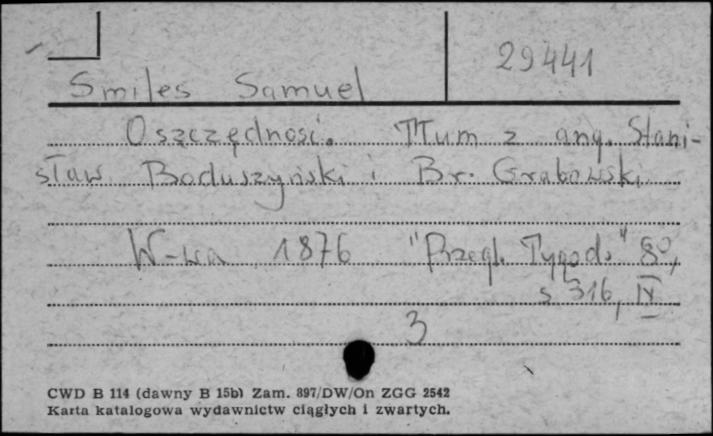 29441
Smiles Samuel
Oszczędność. Tłum z ang. Stani-
sław Boduszyński i Br. Grabowski
W-wa 1876 "Przegl. Tygod." 8°,
s 316, IV
3
CWD B 114 (dawny B 15b) Zam. 897/DW/On ZGG 2542
Karta katalogowa wydawnictw ciągłych i zwartych.